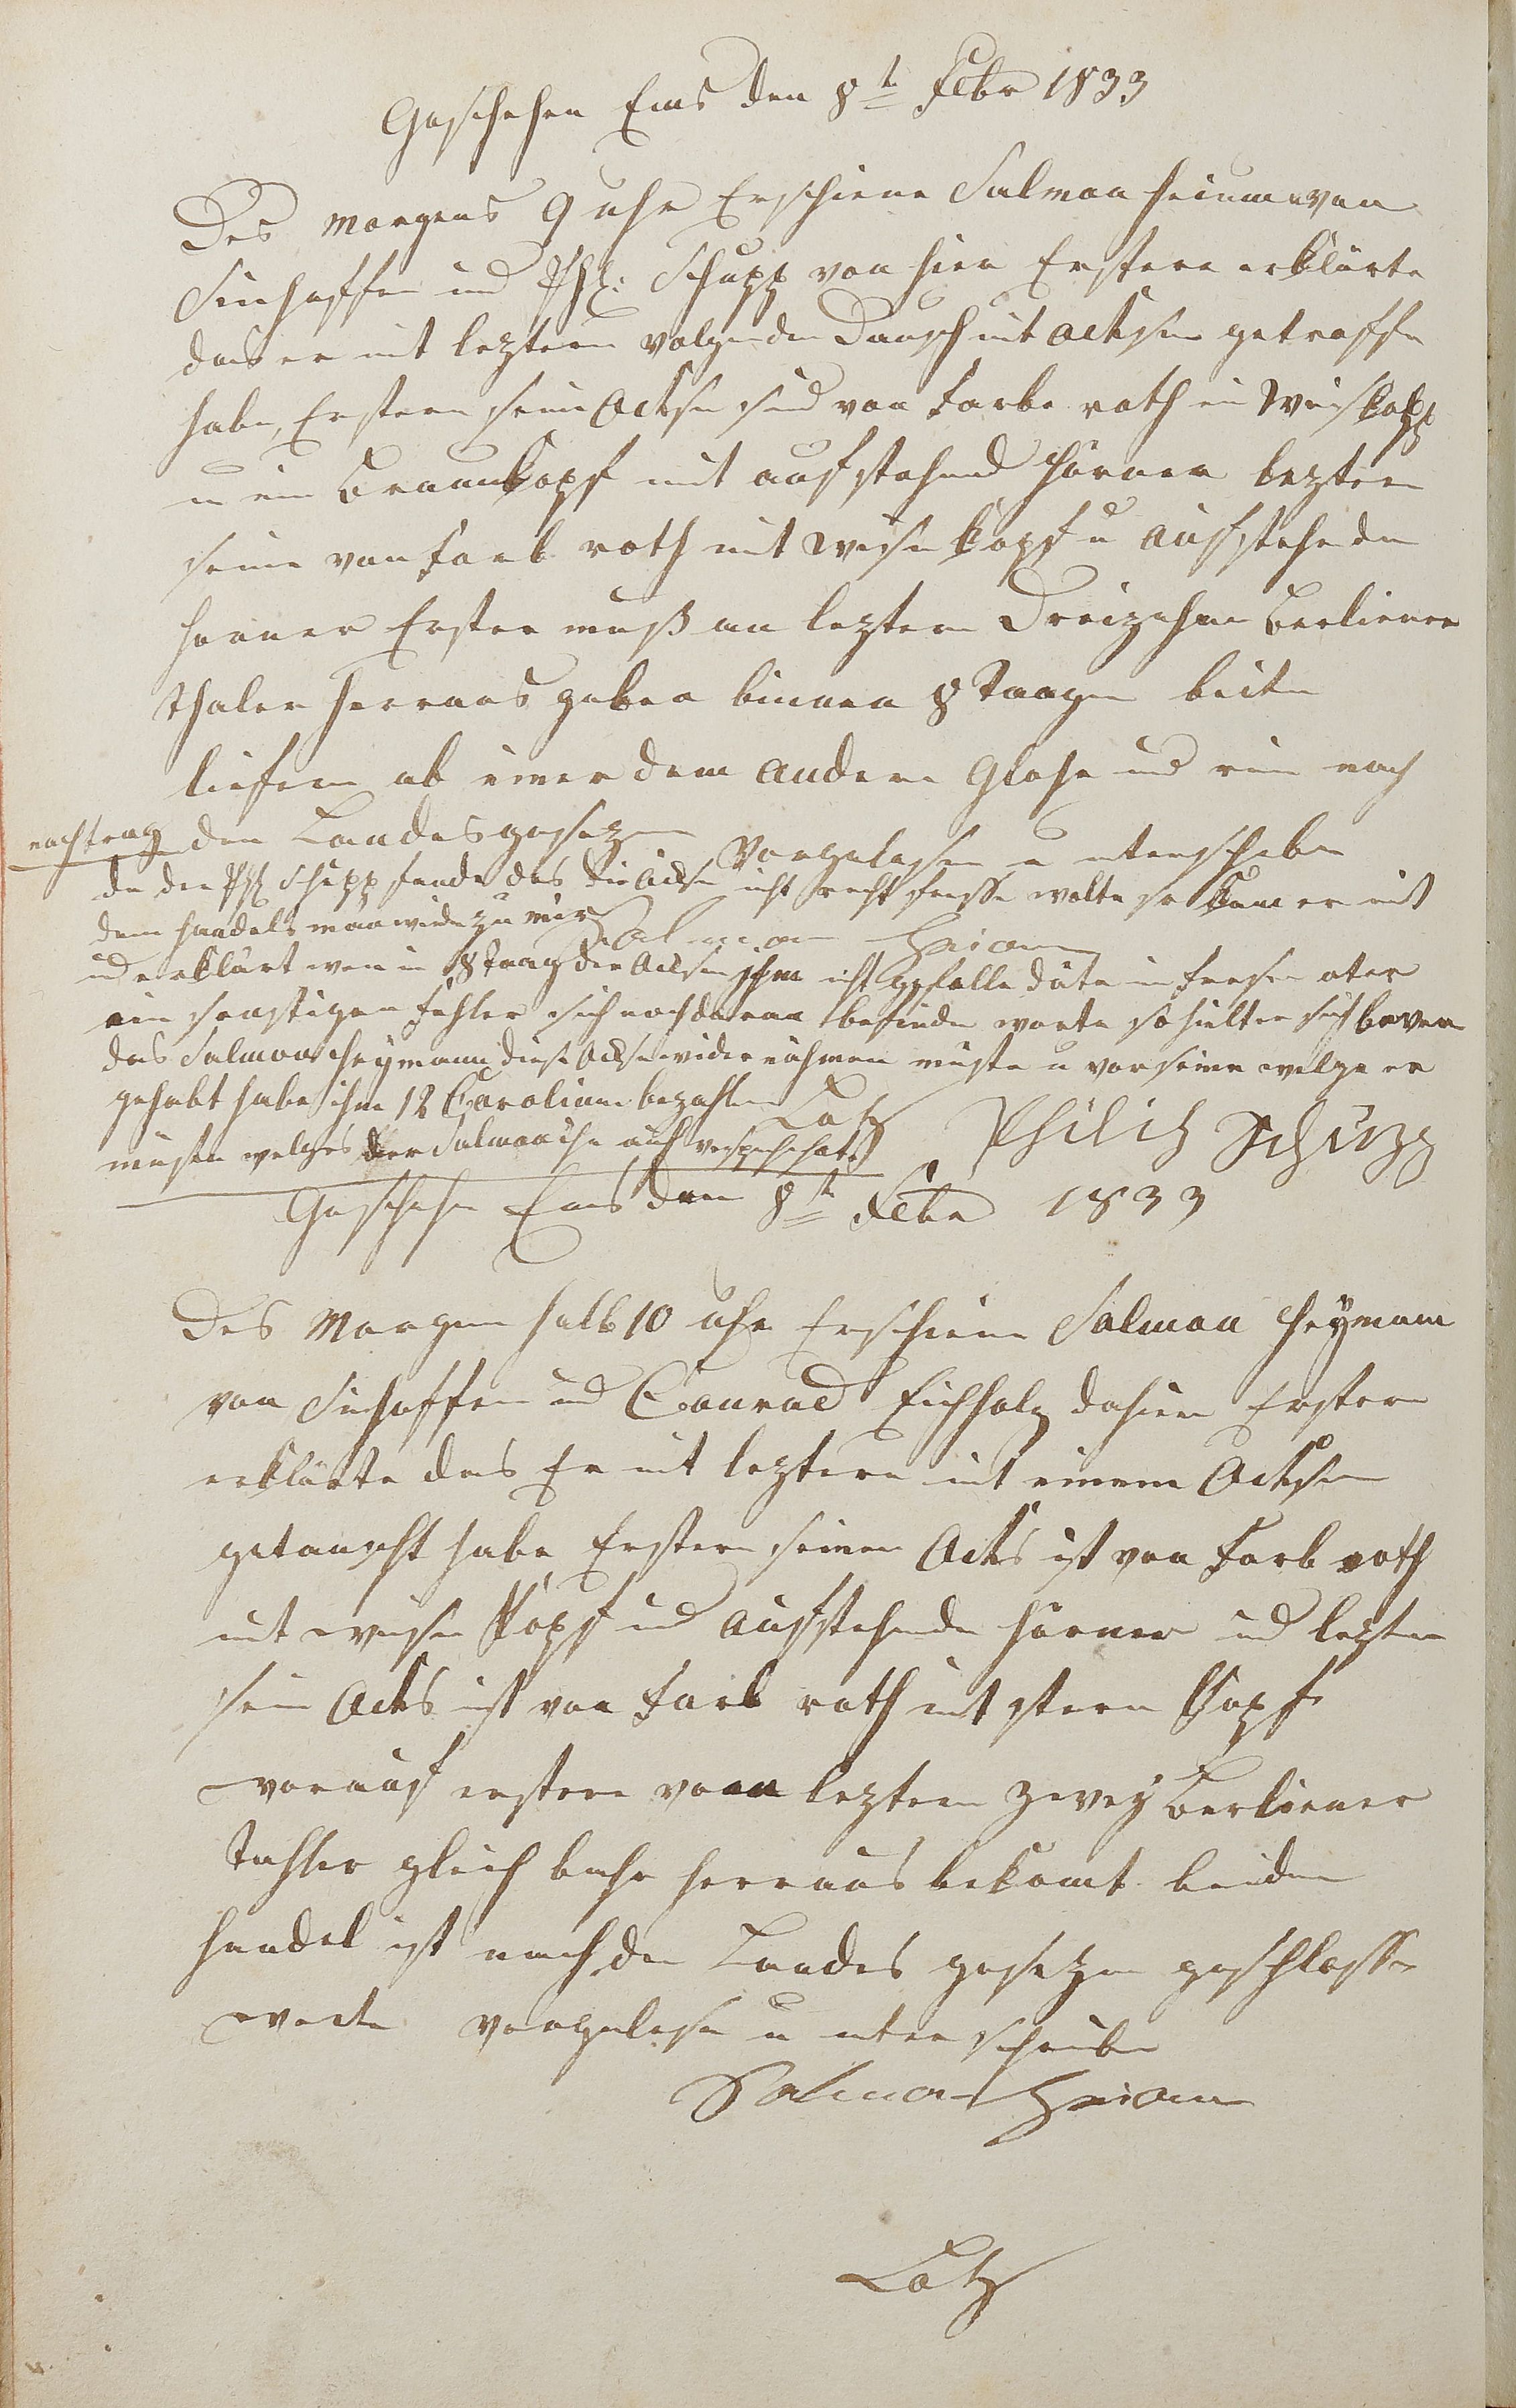 Geschehen Ems den 8t Febr 1833
Des morgens 9 uhr Erschiene Salmon heimann von
Sinhoffen und Phl: Schupp von hier Erstere erklärte
das er mit leztern volgenden Dausch mit ocksen getroffen
habe, Erstern seine Ocksen sind von Farbe roth ein Weiskopp
u ein Braunkopf mit aufstehend Hörner leztern
seine von Farb roth mit weisen kopf u aufstehenden
horner Erster muß an leztern Dreizehen Berliener
thaler herraus geben binnen 8 Taagen beite
liefern ab einer dem andern Glohe und rein nach
den Landesgesezen Vorgelesen u unterschrieben
nachtrag
da der Phl Schupp fande das die Ocksen nicht recht fressen wolte so kame er mit
dem handelsmann wieder zu mir
Salmon Heiman
und erklärt wen in 8 Taag die Ocksen ihm nicht gefalle däte in fresen oter
ein sonstigen Fehler sich noch daran befinden worte so hielte er sich bevor
das Salmon Heymann diese Ockse wider nähmen müste u vor seine welge er
gehabt habe ihm 12 Carolinen bezahlen
müsen welges der Salmon ihm auch versprochen hat
Lotz Philich Schupp
Geschehen Ems den 8t Febr 1833
Des Morgen halb 10 uhr Erschiene Salmon Heymann
von Sinhoffen und Conrad Eichholz dahier Erstere
erklärte das Er mit leztern mit einem Ocksen
getauscht habe Erstern seinen Ocks ist von Farb roth
mit weisen Kopf und aufstehende hörner und leztern
sein Ocks ist von Farb roth mit stern Kopf
worauf erstere vonn leztern zwey Berliener
Tahler gleich bahr herraus bekomt beiden
handel ist nach den Landes gesezen geschlossen
worten vorgelesen u unter schrieben
Salmon Heiman
Lotz